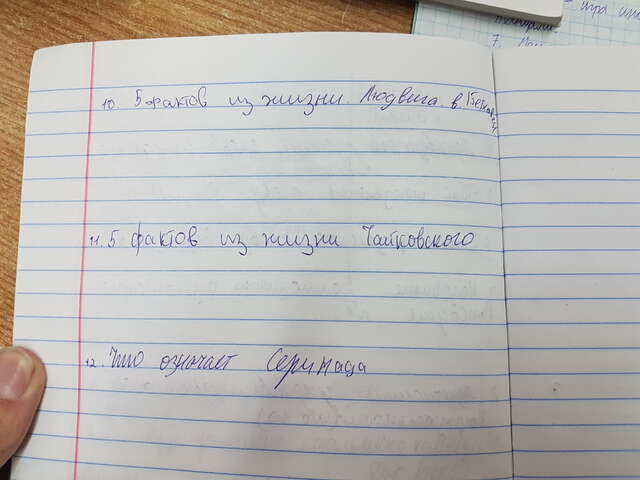 10. 5 фактов из жизни Людвига в. Бетхо
11. 5 фактов из жизни Чайковского
12. Что означает Серенада
7.